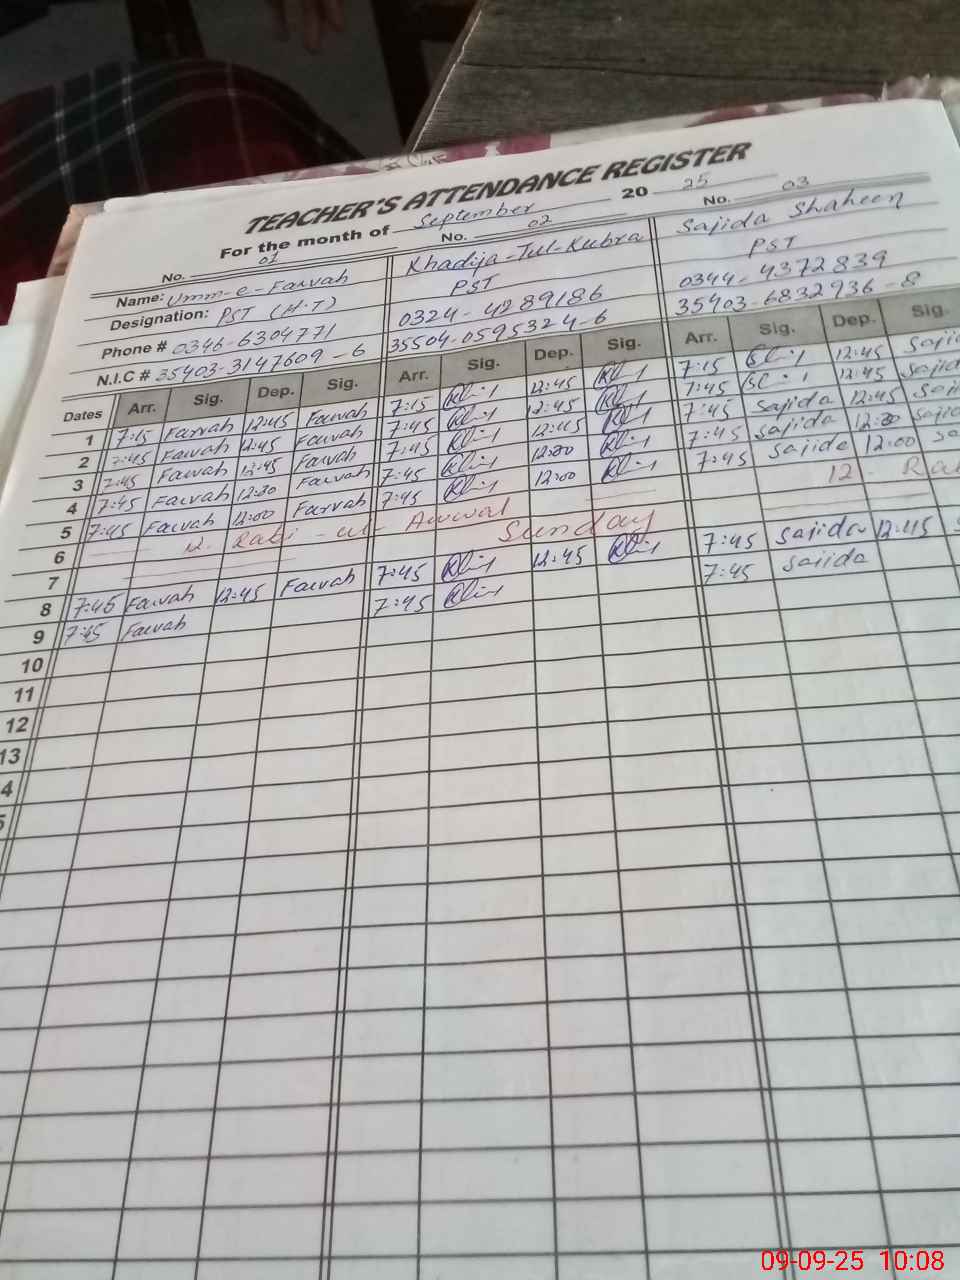 TEACHER'S ATTENDANCE REGISTER
For the month of September 2025
No. 01 No. 02 No. 03
Name: Umm-e-Farvah Khadija-Tul-Kubra Sajida Shaheen
Designation: PST (H.T) PST PST
Phone # 0346-6304771 0324-4289186 0344-4372839
N.I.C # 35403-3147609-6 35504-0595324-6 35403-6832936-8
Dates Arr. Sig. Dep. Sig. Arr. Sig. Dep. Sig. Arr. Sig. Dep. Sig.
1 7:15 Farvah 12:45 Farvah 7:15 12:45 7:15 12:45
2 7:45 Farvah 12:45 Farvah 7:45 12:45 7:45 12:45
3 7:45 Farvah 12:45 Farvah 7:45 12:45 7:45 Sajida 12:45
4 7:45 Farvah 12:30 Farvah 7:45 7:45 Sajida
5 7:45 Farvah 12:00 Farvah 7:45 12:00 7:45 Sajida 12:00
6 12 - Rabi - ul - Awwal 12 -
7 Sunday
8 7:45 Farvah 12:45 Farvah 7:45 12:45 7:45 Sajida 12:45
9 7:45 Farvah 7:45 7:45 Sajida
10
11
12
13
4
5
09-09-25 10:08